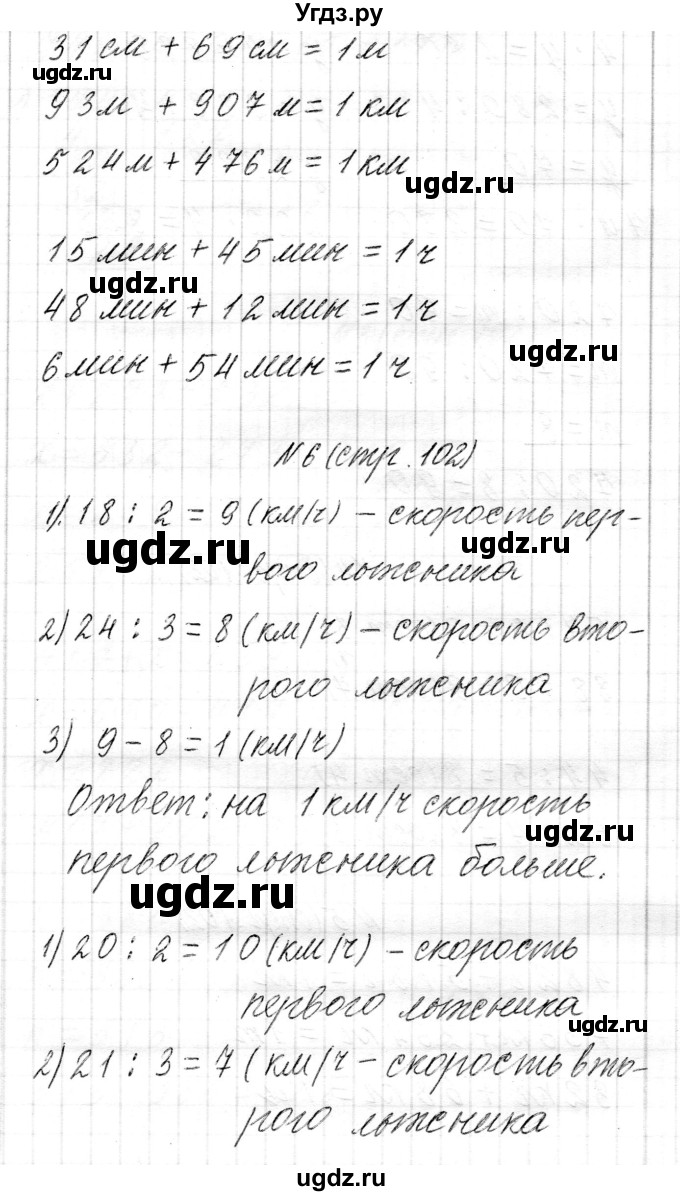 Угдз.ру
31см + 69см = 1м
ugdz.ru
93м + 907м = 1км
524м + 476м = 1км
ugdz.ru
15мин + 45мин = 1ч
ugdz.ru
48мин + 12мин = 1ч
ugdz.ru
6мин + 54мин = 1ч
№6 (стр. 102)
1). 18 : 2 = 9 (км/ч) – скорость пер-
ugdz.ru ugdz.ru
вого лыжсника
2) 24 : 3 = 8 (км/ч) – скорость вто-
рого лыжсника
ugdz.ru
3) 9 – 8 = 1 (км/ч)
Ответ: на 1км/ч скорость
ugdz.ru
первого лыжсника больше.
ugdz.ru
1) 20 : 2 = 10 (км/ч) – скорость
первого лыжсника
ugdz.ru
2) 21 : 3 = 7 (км/ч – скорость вто-
рого лыжсника
ugdz.ru
ugdz.ru